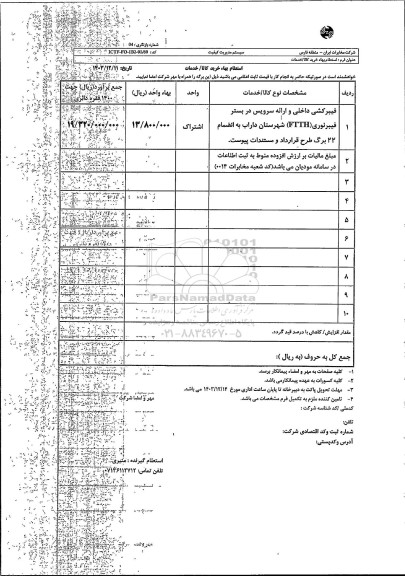 شرکت مخابرات ایران - منطقه فارس
سیستم مدیریت کیفیت
عنوان فرم: استعلام بهاء خرید کالا/خدمات
استعلام بهاء خرید کالا/ خدمات
تاریخ: ۱۴۰۳/۱۲/۱۱
خواهشمند است در صورتیکه حاضر به انجام کار با قیمت ثابت اعلامی می باشید ذیل این برگه را همراه با مهر شرکت امضا نمایید.
ردیف
مشخصات نوع کالا/خدمات
واحد
بهاء واحد (ریال)
جمع برآورد(ریال) جهت
۱۴۰۰ فقره دائری
۱
فیبرکشی داخلی و ارائه سرویس در بستر
فیبرنوری(FTTH) شهرستان داراب به انضمام
۲۲ برگ طرح قرارداد و مستندات پیوست.
اشتراک
۱۳/۸۰۰/۰۰۰
۱۹/۳۲۰/۰۰۰/۰۰۰
۲
مبلغ مالیات بر ارزش افزوده منوط به ثبت اطلاعات
در سامانه مودیان می باشد(کد شعبه مخابرات ۰۰۱۴)
۳
۴
۵
۶
۷
۸
۹
۱۰
ParsNamadData
۰۲۱-۸۸۳۴۹۶۷۰-۵
مقدار افزایش/ کاهش با درصد قید گردد.
جمع کل به حروف (به ریال):
۱- کلیه صفحات به مهر و امضاء پیمانکار برسد.
۲- کلیه کسورات به عهده پیمانکار می باشد.
۳- مهلت تحویل پاکت به دبیرخانه تا پایان ساعت اداری مورخ ۱۴۰۳/۱۲/۱۴ می باشد.
۴- تامین کننده ملزم به تکمیل فرم مشخصات می باشد.
مهر و امضا شرکت
کدملی /کد شناسه شرکت:
تلفن:
شماره ثبت وکد اقتصادی شرکت:
آدرس وکدپستی:
استعلام گیرنده: منیری
تلفن تماس: ۰۷۱۴۶۱۱۳۷۱۲